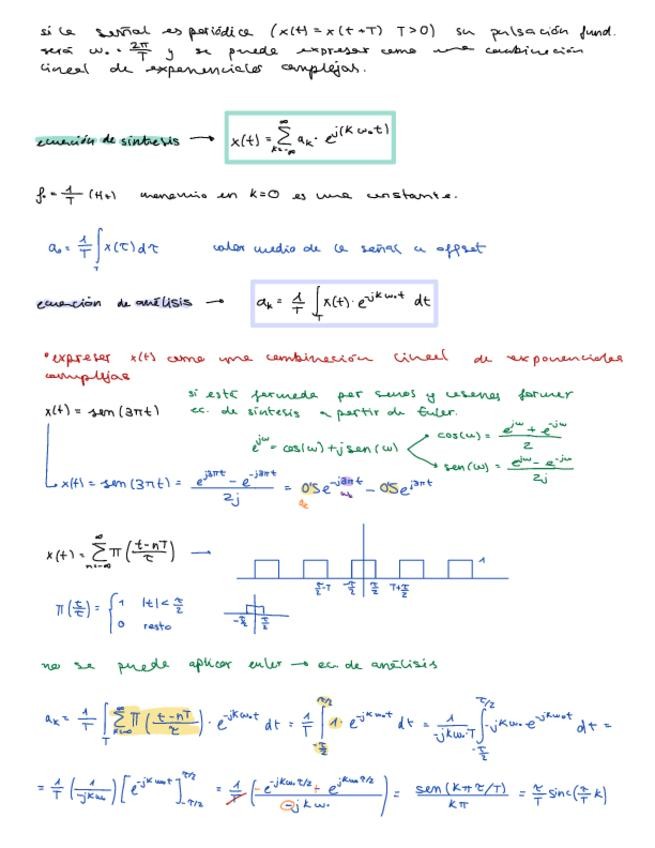 si la señal es periódica (x(t) = x(t+T) T>0) su pulsación fund.
será ω₀ = 2π/T y se puede expresar como una combinación
lineal de exponenciales complejas.
ecuación de síntesis → x(t) = ∑_{k=-∞}^{∞} a_k · e^{j(kω₀t)}
f₀ = 1/T (Hz) en k=0 es una constante.
a₀ = 1/T ∫_T x(τ)dτ valor medio de la señal u offset
ecuación de análisis → a_k = 1/T ∫_T x(t)·e^{-jkω₀t} dt
• expresar x(t) como una combinación lineal de exponenciales
complejas
si está formada por senos y cosenos formar
x(t) = sen(3πt) ec. de síntesis a partir de Euler.
e^{jω} = cos(ω) + j sen(ω) cos(ω) = (e^{jω} + e^{-jω})/2
sen(ω) = (e^{jω} - e^{-jω})/2j
x(t) = sen(3πt) = (e^{j3πt} - e^{-j3πt})/2j = 0'5e^{-j3πt} - 0'5e^{j3πt}
a_k ω₀
x(t) = ∑_{n=-∞}^{∞} Π((t-nT)/τ) → 1
τ/2-T -τ/2 τ/2 T+τ/2
Π(t/τ) = { 1 |t| < τ/2
0 resto
-τ/2 τ/2
no se puede aplicar euler → ec. de análisis
a_k = 1/T ∫_T ∑_{k=-∞}^{∞} Π((t-nT)/τ) · e^{-jkω₀t} dt = 1/T ∫_{-τ/2}^{τ/2} 1 · e^{-jkω₀t} dt = 1/(-jkω₀T) ∫_{-τ/2}^{τ/2} -jkω₀ · e^{-jkω₀t} dt =
= 1/T (1/(-jkω₀)) [e^{-jkω₀t}]_{-τ/2}^{τ/2} = 1/T ((-e^{-jkω₀τ/2} + e^{jkω₀τ/2})/(-jkω₀)) = sen(kπτ/T)/(kπ) = τ/T sinc(τ/T k)